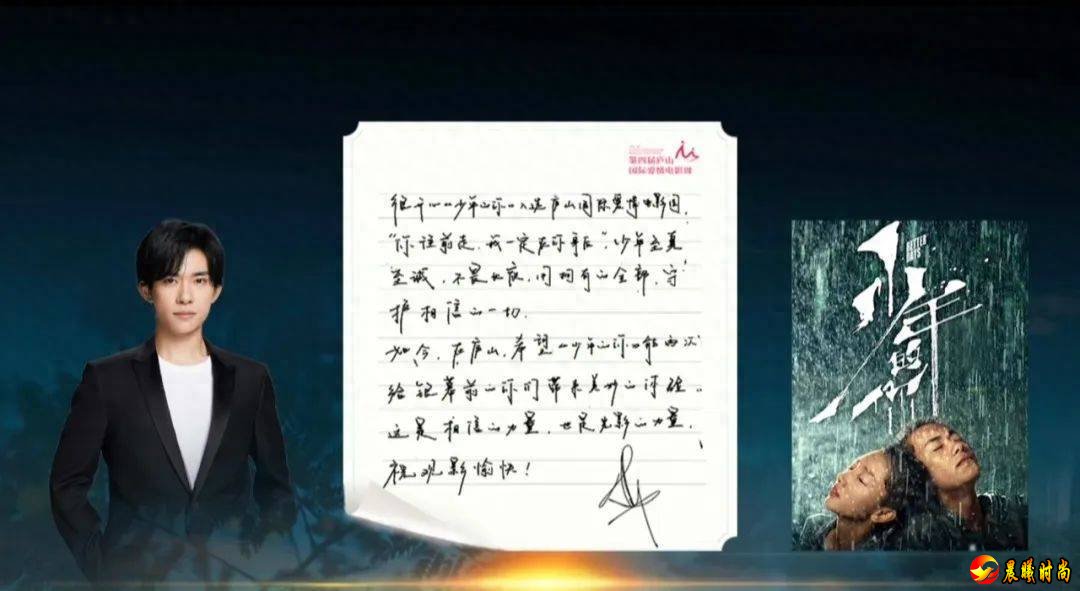 第四届庐山
国际爱情电影周
很开心《少年的你》入选庐山国际爱情电影周,
“你往前走,我一定在你身后”,少年至真
至诚,不畏,用拥有的全部,守
护相信的一切.
如今,在庐山,希望《少年的你》能再次
给银幕前的你们带来美好的体验..
这是相信的力量,也是光影的力量,
祝观影愉快!
BETTER
DAYS
少年的你
晨曦时尚